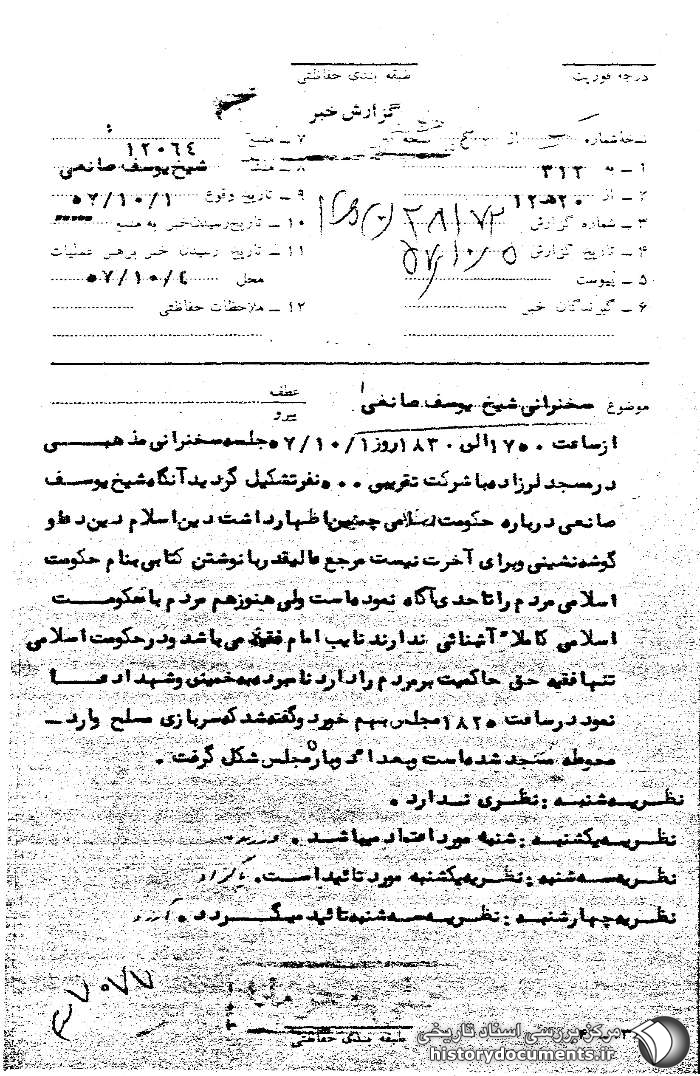 درجه فوریت
طبقه بندی حفاظتی
گزارش خبر
نسخه شماره از نسخه
۱ ـ به ۳۱۲
۲ ـ از ۲۰هـ۱۲
۳ ـ شماره گزارش
۴ ـ تاریخ گزارش ۵۷/۱۰/۵
۵ ـ پیوست
۶ ـ گیرندگان خبر
۷ ـ منبع ۱۲۰۶۴
۸ ـ منشاء شیخ یوسف صانعی
۹ ـ تاریخ وقوع ۵۷/۱۰/۱
۱۰ ـ تاریخ رسیدن خبر به منبع
۱۱ ـ تاریخ رسیدن خبر برهبر عملیات
محل ۵۷/۱۰/۴
۱۲ ـ ملاحظات حفاظتی
موضوع سخنرانی شیخ یوسف صانعی
عطف
پیرو
از ساعت ۱۷۵۰ الی ۱۸۳۰ روز ۵۷/۱۰/۱ جلسه سخنرانی مذهبی
در مسجد لرزاده با شرکت تقریبی ۵۰۰ نفر تشکیل گردید آنگاه شیخ یوسف
صانعی درباره حکومت اسلامی چنین اظهار داشت دین اسلام دین دعا و
گوشه نشینی و برای آخرت نیست مرجع عالیقدر با نوشتن کتابی بنام حکومت
اسلامی مردم را تا حدی آگاه نموده است ولی هنوز هم مردم با حکومت
اسلامی کاملا" آشنائی ندارند نایب امام فقیه می باشد و در حکومت اسلامی
تنها فقیه حق حاکمیت بر مردم را دارد نامبرده به خمینی و شهدا دعا
نمود در ساعت ۱۸۲۵ مجلس بهم خورد و گفته شد که سربازی مسلح وارد
محوطه مسجد شده است و بعدا" دوباره مجلس شکل گرفت .
نظریه شنبه : نظری ندارد .
نظریه یکشنبه : شنبه مورد اعتماد میباشد .
نظریه سه شنبه : نظریه یکشنبه مورد تائید است .
نظریه چهارشنبه : نظریه سه شنبه تائید میگردد .
طبقه بندی حفاظتی
مرکز بررسی اسناد تاریخی
historydocuments.ir